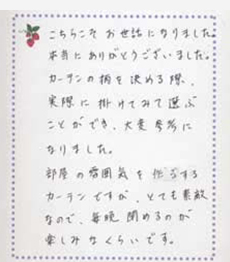 こちらこそ お世話になりました。
本当に ありがとうございました。
カーテンの柄を決める際、
実際に掛けてみて選ぶ
ことができ、大変参考に
なりました。
部屋の雰囲気を 作用する
カーテンですが、とても素敵
なので、毎晩 閉めるのが
楽しみなくらいです。